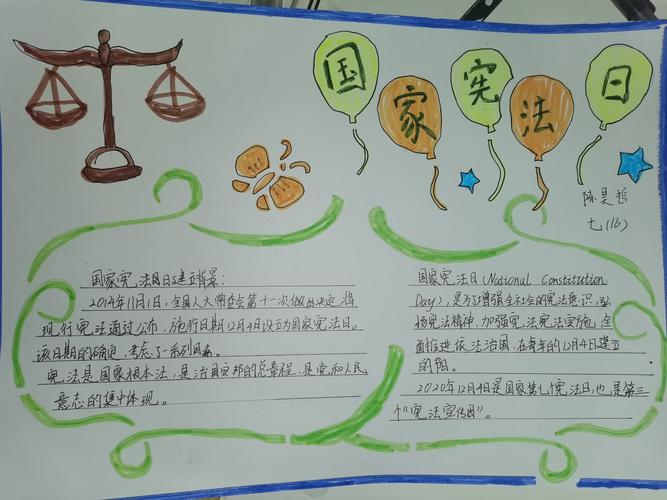 国家宪法日
陈昊哲
七(16)
国家宪法日建立背景:
2014年11月1日,全国人大常委会第十一次做出决定,将
现行宪法通过公布,施行日期12月4日设立为国家宪法日。
该日期的确定,考虑了一系列因素。
宪法是国家根本法,是治国安邦的总章程,是党和人民
意志的集中体现。
国家宪法日(National Constitution
Day),是为了增强全社会的宪法意识,弘
扬宪法精神,加强宪法实施,全
面推进依法治国,在每年的12月4日建立
的
2020年12月4日是国家第七个宪法日,也是第三
个“宪法宣传周”。